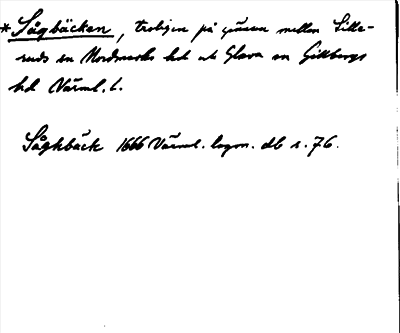 * Sågbäcken, troligen på gränsen mellan Sille-
ruds sn Nordmarks hd och Glava sn Gillbergs
hd Värml. l.
Sågkbäck 1666 Värml. lagm. db s. 76.